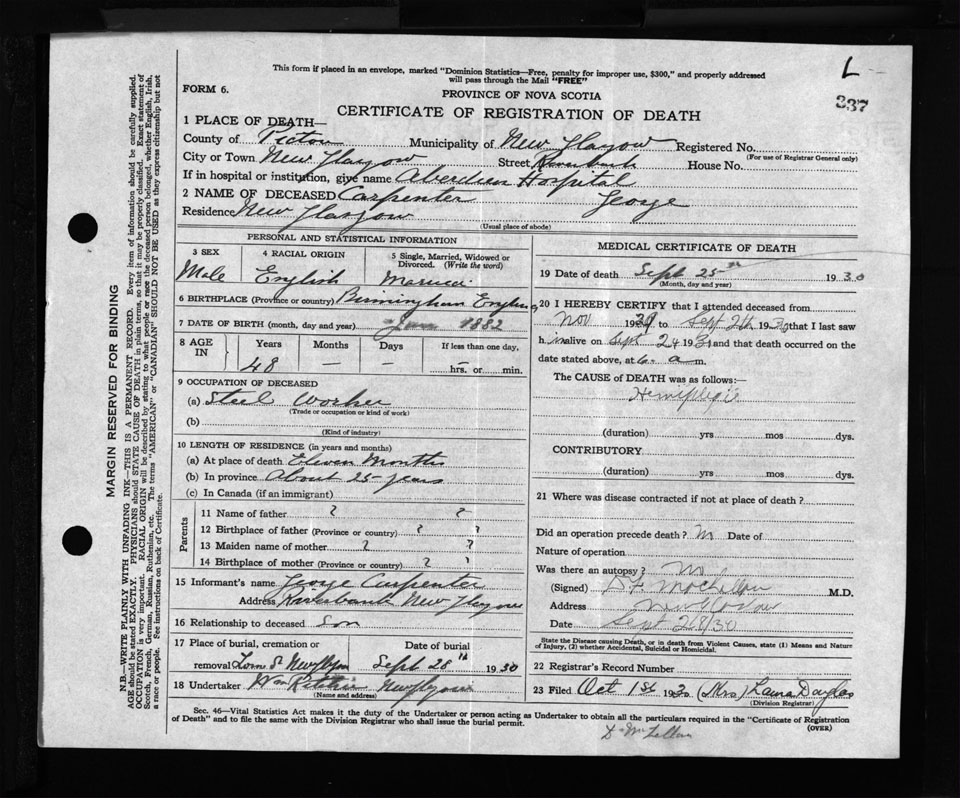 L
337
This form if placed in an envelope, marked "Dominion Statistics—Free, penalty for improper use, $300," and properly addressed
will pass through the Mail "FREE"
FORM 6.
PROVINCE OF NOVA SCOTIA
CERTIFICATE OF REGISTRATION OF DEATH
1 PLACE OF DEATH—
County of Pictou Municipality of New Glasgow Registered No.
(For use of Registrar General only)
City or Town New Glasgow Street Riverbank House No.
If in hospital or institution, give name Aberdeen Hospital
2 NAME OF DECEASED Carpenter George
Residence New Glasgow
(Usual place of abode)
PERSONAL AND STATISTICAL INFORMATION
3 SEX 4 RACIAL ORIGIN 5 Single, Married, Widowed or Divorced. (Write the word)
Male English Married
6 BIRTHPLACE (Province or country) Birmingham England
7 DATE OF BIRTH (month, day and year) 1882
8 AGE IN Years Months Days If less than one day,
48 — – hrs. or min.
9 OCCUPATION OF DECEASED
(a) Steel Worker
(Trade or occupation or kind of work)
(b)
(Kind of industry)
10 LENGTH OF RESIDENCE (in years and months)
(a) At place of death Eleven Months
(b) In province About 25 years
(c) In Canada (if an immigrant)
Parents
11 Name of father ? ?
12 Birthplace of father (Province or country) ? ?
13 Maiden name of mother ? ?
14 Birthplace of mother (Province or country) ? ?
15 Informant's name George Carpenter
Address Riverbank New Glasgow
16 Relationship to deceased Son
17 Place of burial, cremation or Date of burial
removal Lorne St New Glasgow Sept 28th 1930
18 Undertaker Wm New Glasgow
(Name and address)
MEDICAL CERTIFICATE OF DEATH
19 Date of death Sept 25th 1930
(Month, day and year)
20 I HEREBY CERTIFY that I attended deceased from
Nov 19 to Sept 1930 that I last saw
h im alive on Sept 24 193 and that death occurred on the
date stated above, at 6. a m.
The CAUSE of DEATH was as follows:—
Hemiplegia
(duration) yrs mos dys.
CONTRIBUTORY
(duration) yrs mos dys.
21 Where was disease contracted if not at place of death?
Did an operation precede death? Date of
Nature of operation
Was there an autopsy? No
(Signed) M.D.
Address New Glasgow
Date Sept 28/30
State the Disease causing Death, or in death from Violent Causes, state (1) Means and Nature
of Injury, (2) whether Accidental, Suicidal or Homicidal.
22 Registrar's Record Number
23 Filed Oct 1st 1930 (Mrs) Laura Douglas
(Division Registrar)
Sec. 46—Vital Statistics Act makes it the duty of the Undertaker or person acting as Undertaker to obtain all the particulars required in the "Certificate of Registration
of Death" and to file the same with the Division Registrar who shall issue the burial permit.
(OVER)
D McLellan
MARGIN RESERVED FOR BINDING
N.B.—WRITE PLAINLY WITH UNFADING INK—THIS IS A PERMANENT RECORD. Every item of information should be carefully supplied.
AGE should be stated EXACTLY. PHYSICIANS should STATE CAUSE OF DEATH in plain terms, so that it may be properly classified. Exact statement of
OCCUPATION is very important. RACIAL ORIGIN will be described by stating to what people or race the deceased person belonged, whether English, Irish,
Scotch, French, German, Russian, Ruthenian, etc. The terms "AMERICAN" or "CANADIAN" SHOULD NOT BE USED as they express citizenship but not
a race or people. See instructions on back of Certificate.